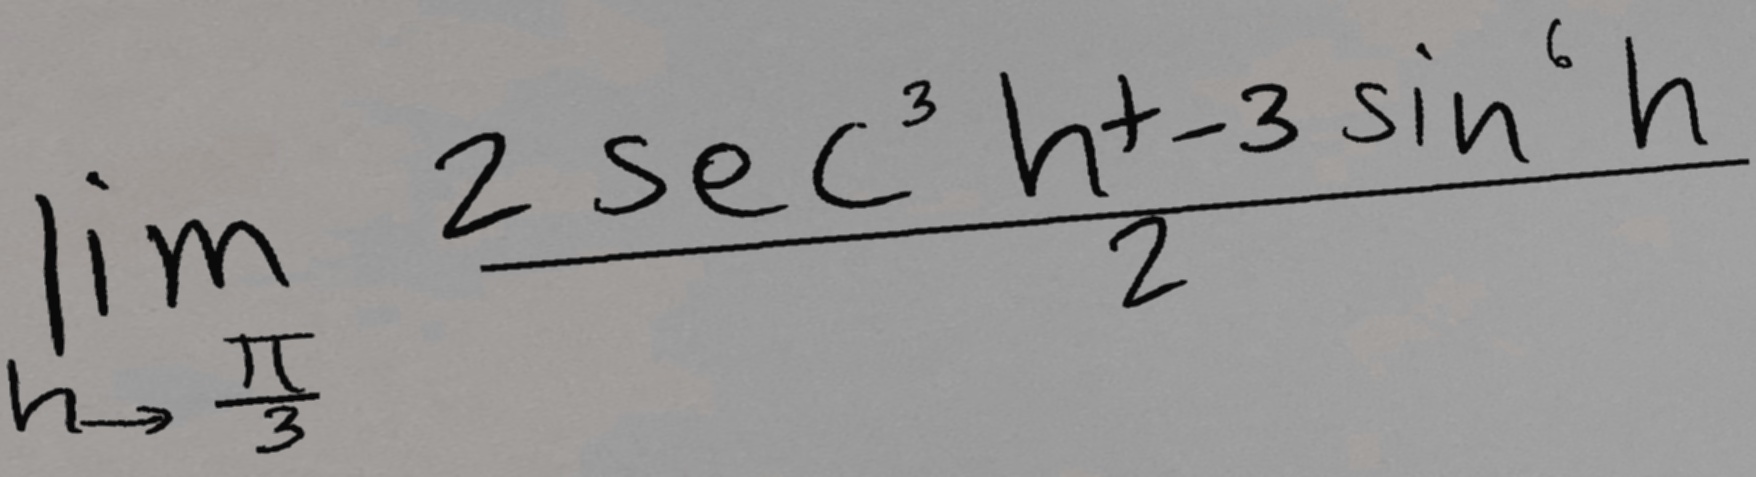 lim h→π/3 (2 sec³ h + -3 sin⁶ h)/2